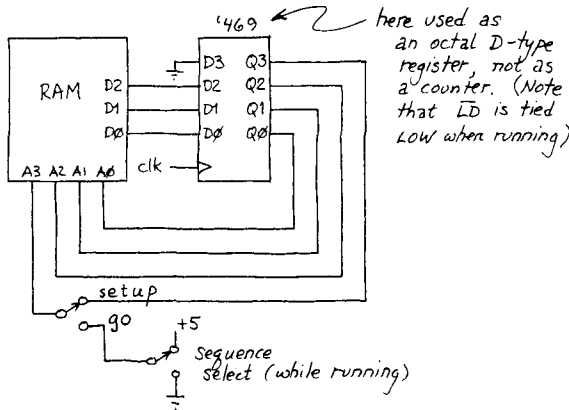 '469
here used as
an octal D-type
register, not as
a counter. (Note
that LD is tied
LOW when running)
RAM
D2
D1
DØ
D3
D2
D1
DØ
Q3
Q2
Q1
QØ
clk
A3 A2 A1 AØ
setup
go
+5
sequence
select (while running)